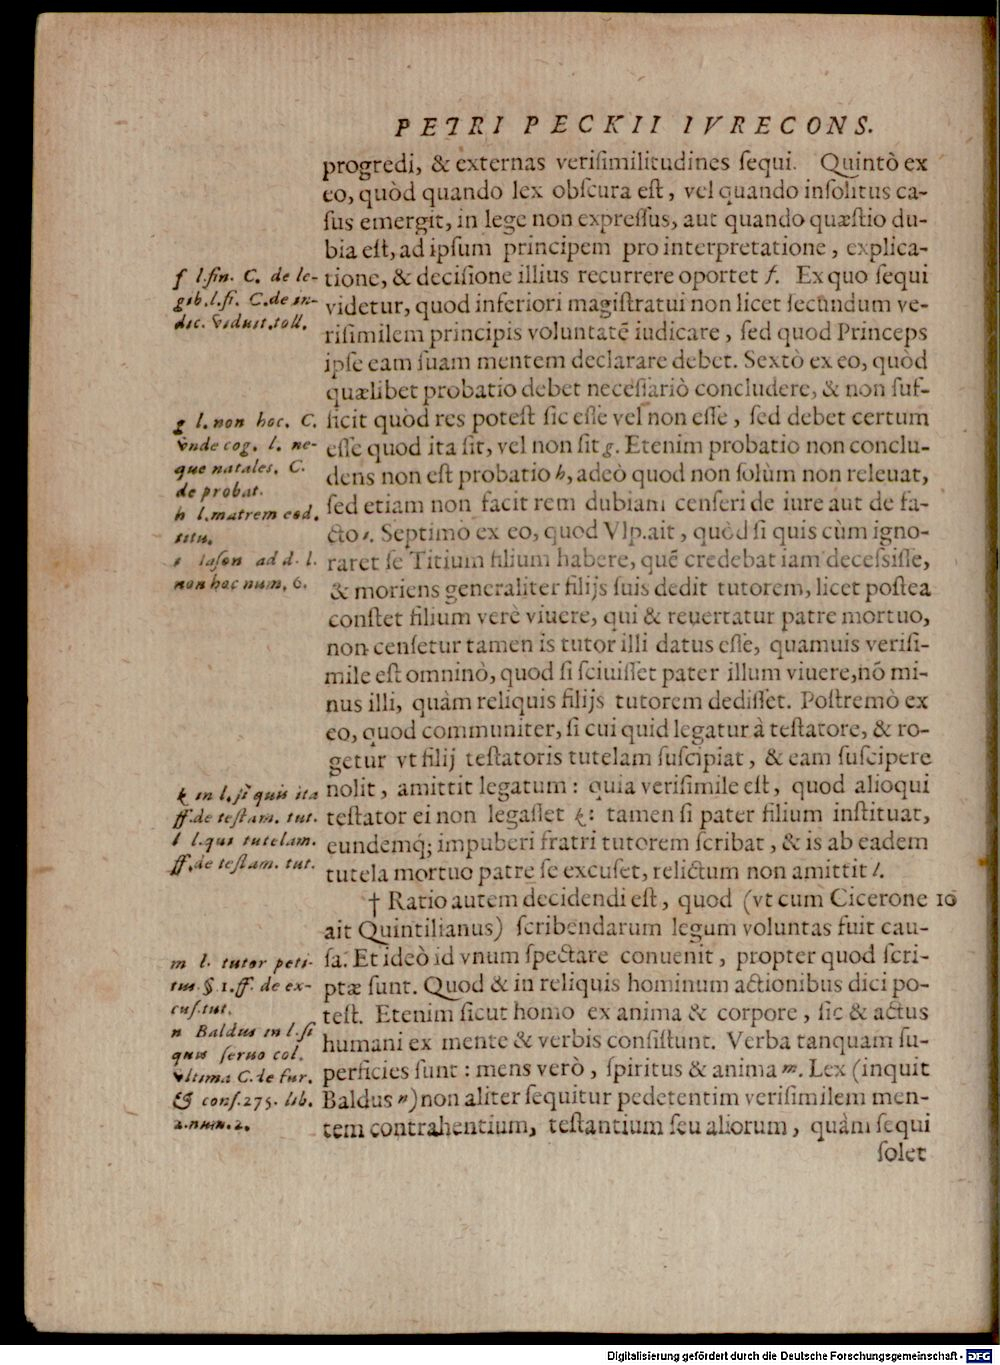 PETRI PECKII IVRECONS.
progredi, & externas verisimilitudines sequi. Quintò ex
eo, quòd quando lex obscura est, vel quando insolitus ca-
sus emergit, in lege non expressus, aut quando quæstio du-
bia est, ad ipsum principem pro interpretatione, explica-
tione, & decisione illius recurrere oportet f. Ex quo sequi
videtur, quod inferiori magistratui non licet secundum ve-
risimilem principis voluntatē iudicare, sed quod Princeps
ipse eam suam mentem declarare debet. Sextò ex eo, quòd
quælibet probatio debet necessariò concludere, & non suf-
ficit quòd res potest sic esse vel non esse, sed debet certum
esse quod ita sit, vel non sit g. Etenim probatio non conclu-
dens non est probatio h, adeò quod non solùm non releuat,
sed etiam non facit rem dubiam censeri de iure aut de fa-
cto i. Septimò ex eo, quod Vlp. ait, quòd si quis cùm igno-
raret se Titium filium habere, quē credebat iam decessisse,
& moriens generaliter filijs suis dedit tutorem, licet postea
constet filium verè viuere, qui & reuertatur patre mortuo,
non censetur tamen is tutor illi datus esse, quamuis verisi-
mile est omninò, quod si sciuisset pater illum viuere, nō mi-
nus illi, quàm reliquis filijs tutorem dedisset. Postremò ex
eo, quod communiter, si cui quid legatur à testatore, & ro-
getur vt filij testatoris tutelam suscipiat, & eam suscipere
nolit, amittit legatum: quia verisimile est, quod alioqui
testator ei non legasset k: tamen si pater filium instituat,
eundemq́; impuberi fratri tutorem scribat, & is ab eadem
tutela mortuo patre se excuset, relictum non amittit l.
† Ratio autem decidendi est, quod (vt cum Cicerone 10
ait Quintilianus) scribendarum legum voluntas fuit cau-
sa. Et ideò id vnum spectare conuenit, propter quod scri-
ptæ sunt. Quod & in reliquis hominum actionibus dici po-
test. Etenim sicut homo ex anima & corpore, sic & actus
humani ex mente & verbis consistunt. Verba tanquam su-
perficies sunt: mens verò, spiritus & anima m. Lex (inquit
Baldus n) non aliter sequitur pedetentim verisimilem men-
tem contrahentium, testantium seu aliorum, quàm sequi
solet
f l. fin. C. de le-
gib. l. si. C. de in-
dic. viduit. toll.
g l. non hoc. C.
vnde cog. l. ne-
que natales. C.
de probat.
h l. matrem eod.
titu.
i Iason ad d. l.
non hoc num. 6.
k in l. si quis ita
ff. de testam. tut.
l l. qui tutelam.
ff. de testam. tut.
m l. tutor peti-
tus §. 1. ff. de ex-
cus. tut.
n Baldus in l. si
quis seruo col.
vltima C. de fur.
& cons. 275. lib.
2. num. 2.
Digitalisierung gefördert durch die Deutsche Forschungsgemeinschaft - DFG